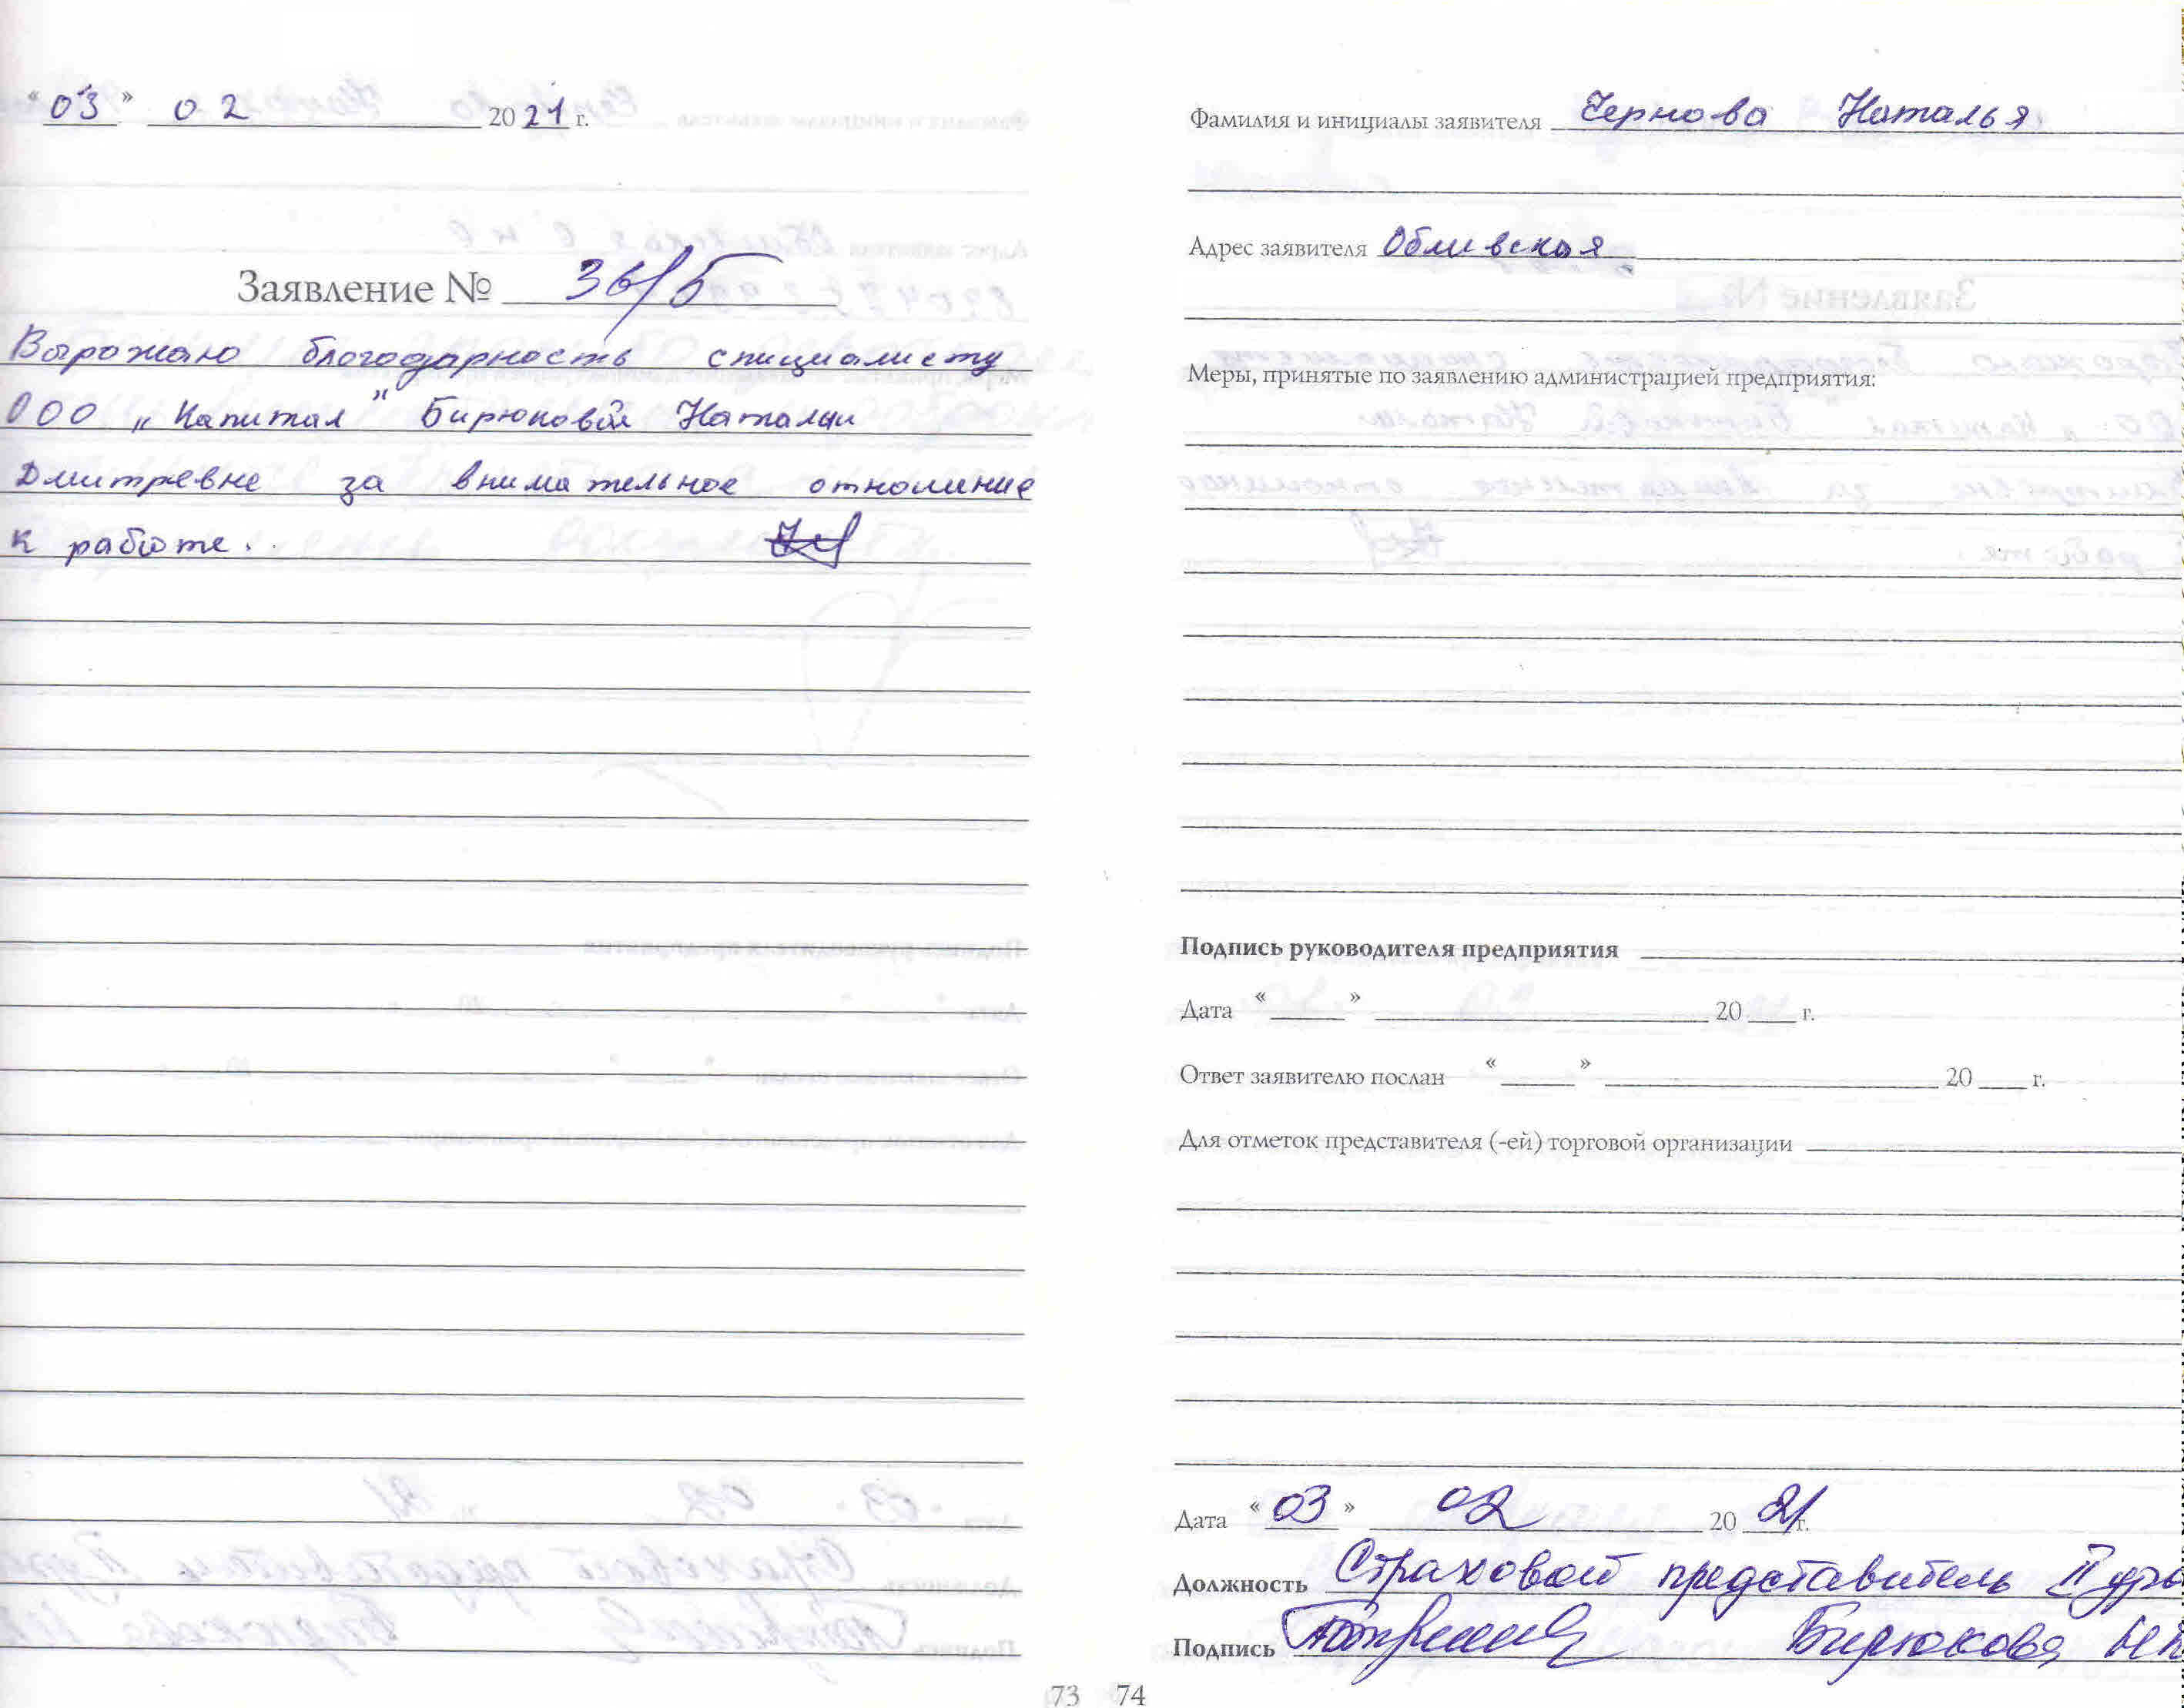 "03" 02 2021 г.
Заявление № 36/5
Выражаю благодарность специалисту
ООО „Капитал" Бирюковой Наталии
Дмитревне за внимательное отношение
к работе.
73
Фамилия и инициалы заявителя Чернова Наталья
Адрес заявителя Обливская
Меры, принятые по заявлению администрацией предприятия:
Подпись руководителя предприятия
Дата « » 20 г.
Ответ заявителю послан « » 20 г.
Для отметок представителя (-ей) торговой организации
Дата «03» 02 2021 г.
Должность Страховой представитель
Подпись Бирюкова
74